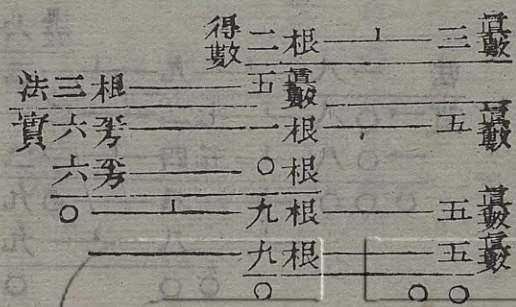 得數 二根─┴─三眞數
法三根───五眞數
實六平方───一根───一五眞數
六平方───一〇根
〇─┴─九根───一五眞數
九根───一五眞數
〇 〇〇